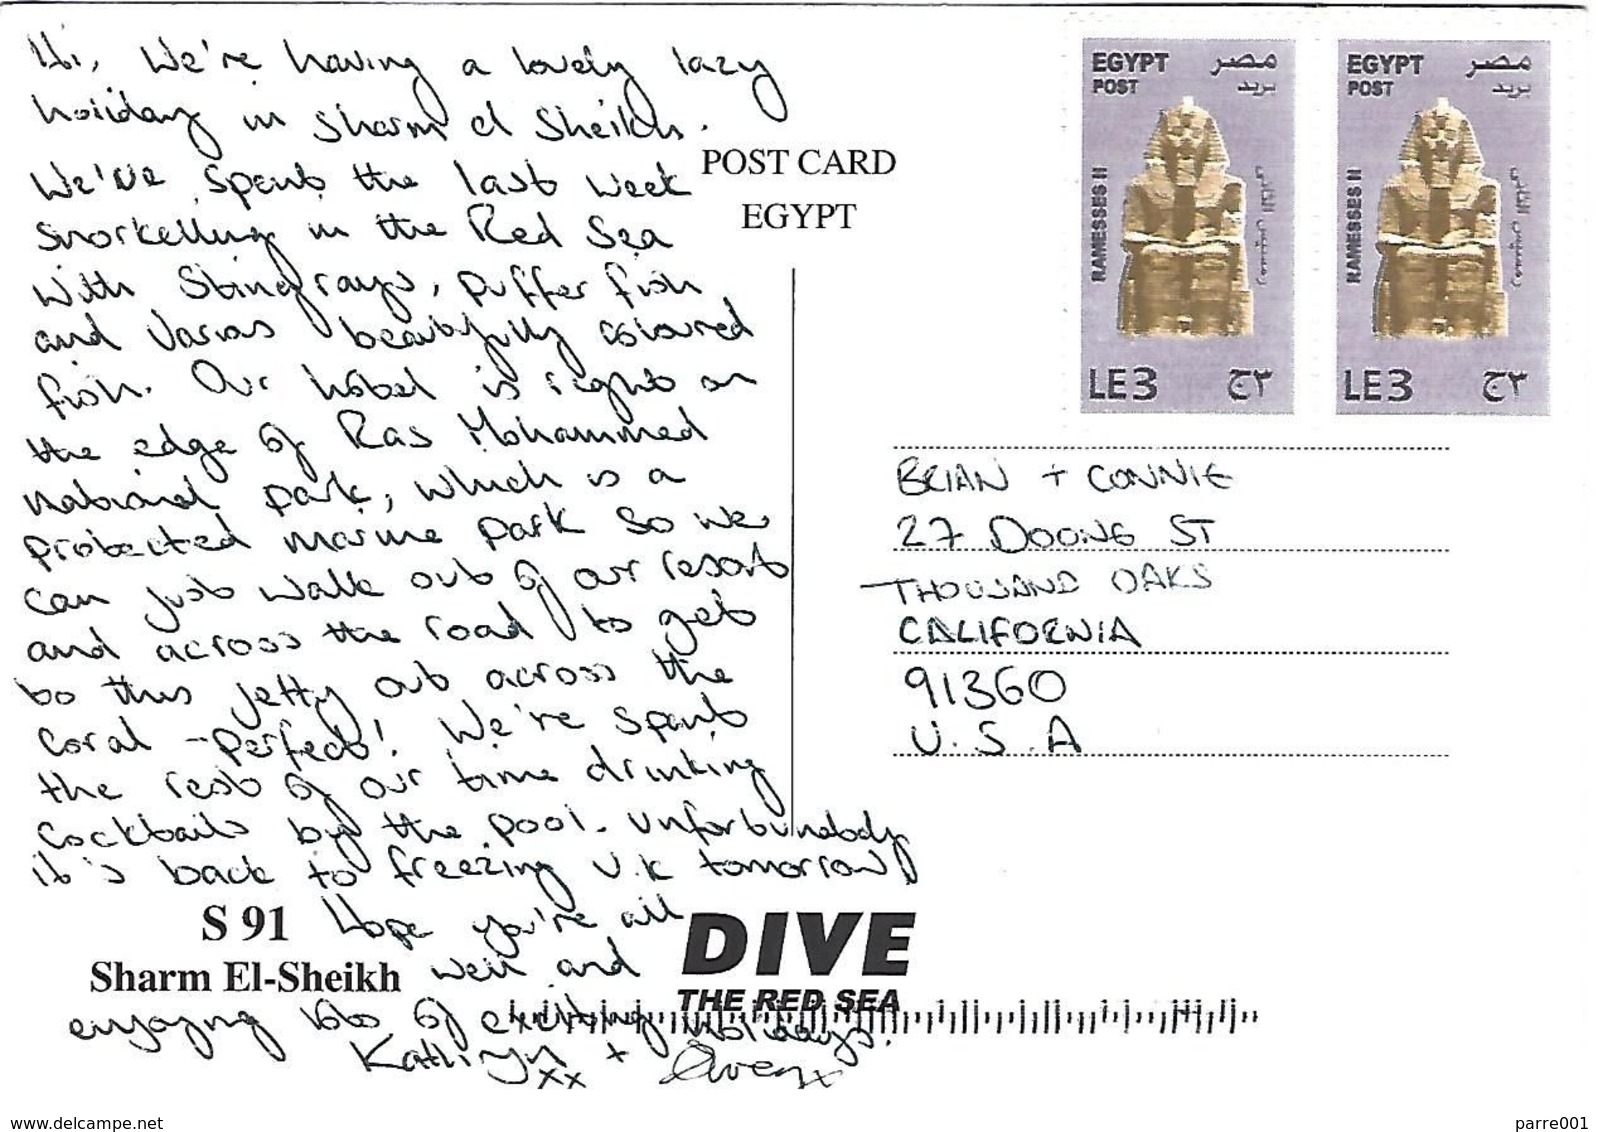 Hi, We're having a lovely lazy
holiday in Sharm el Sheikh.
We've spent the last week
Snorkelling in the Red Sea
with Stingrays, puffer fish
and various beautifully coloured
fish. Our hotel is right on
the edge of Ras Mohammed
national park, which is a
protected marine park so we
can just walk out of our resort
and across the road to get
to this jetty out across the
coral - perfect! We're spent
the rest of our time drinking
cocktails by the pool. Unfortunately
it's back to freezing U.K tomorrow!
Hope you're all
well and
enjoying lots of exciting holidays!
Kathryn xx + Owen x
S 91
Sharm El-Sheikh
DIVE
THE RED SEA
POST CARD
EGYPT
EGYPT مصر
POST بريد
RAMESSES II
رمسيس الثانى
LE3 ٣ج
EGYPT مصر
POST بريد
RAMESSES II
رمسيس الثانى
LE3 ٣ج
BRIAN + CONNIE
27 DOONE ST
THOUSAND OAKS
CALIFORNIA
91360
U.S.A
www.delcampe.net
parre001